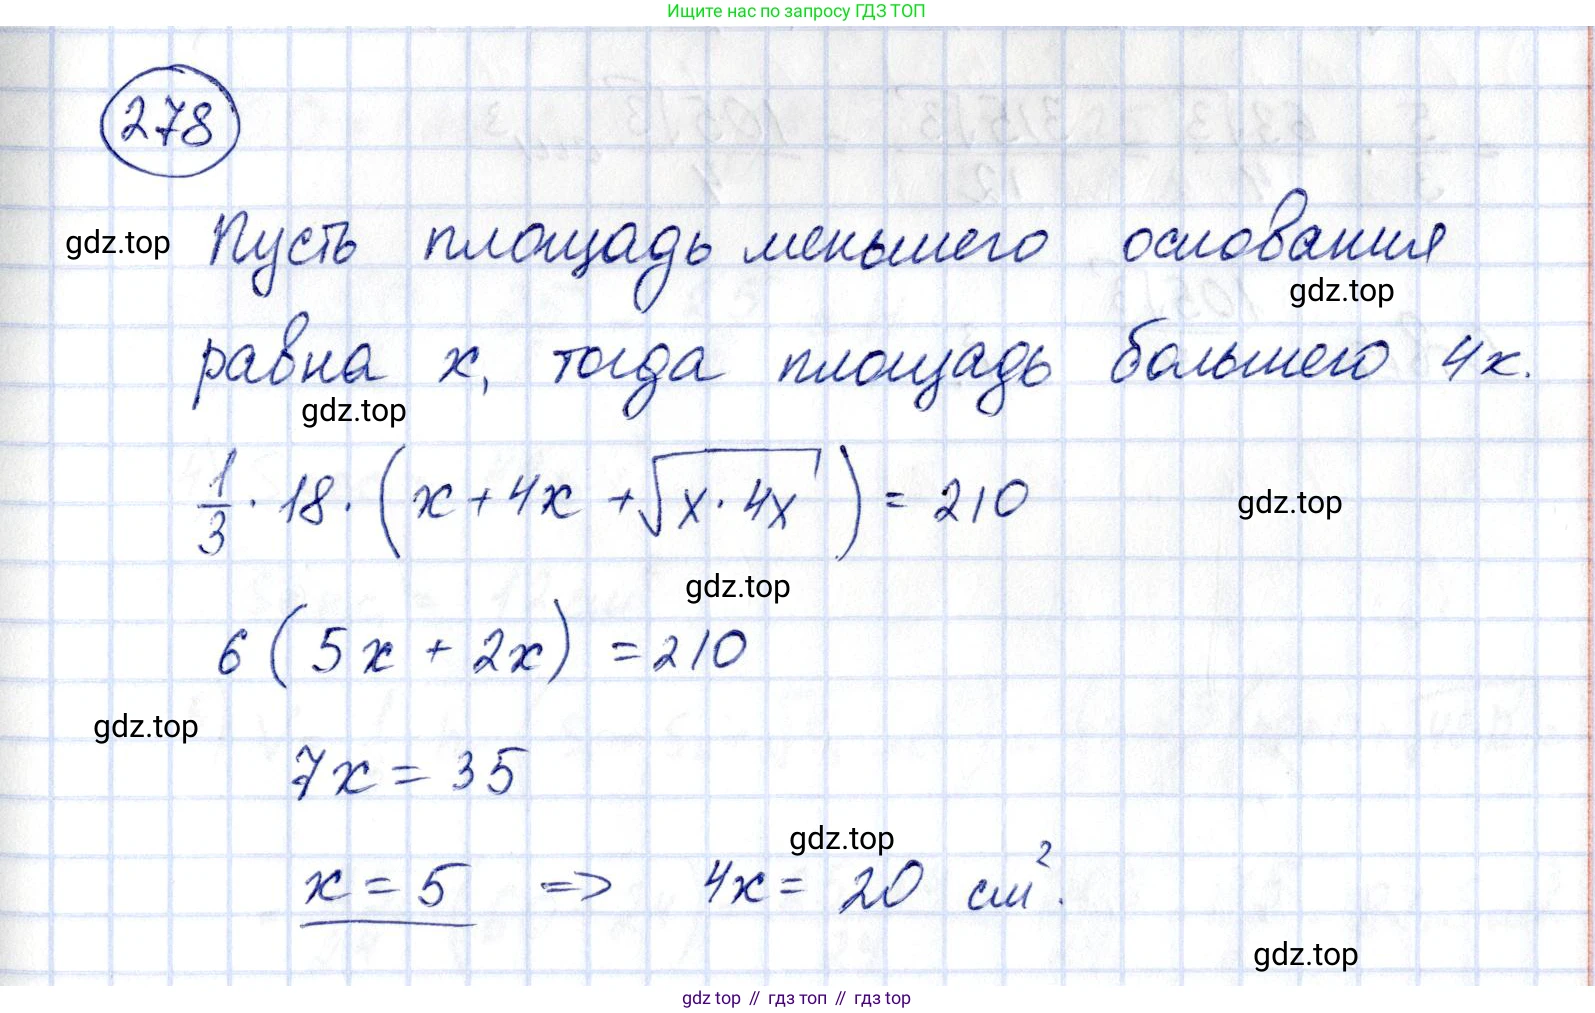 Ищите нас по запросу ГДЗ ТОП
278
gdz.top Пусть площадь меньшего основания
gdz.top
равна x, тогда площадь большего 4x.
gdz.top
1/3 · 18 · (x + 4x + √(x · 4x)) = 210
gdz.top
gdz.top
6 (5x + 2x) = 210
gdz.top
7x = 35
gdz.top
x = 5 => 4x = 20 см².
gdz.top
gdz top // гдз топ // гдз top